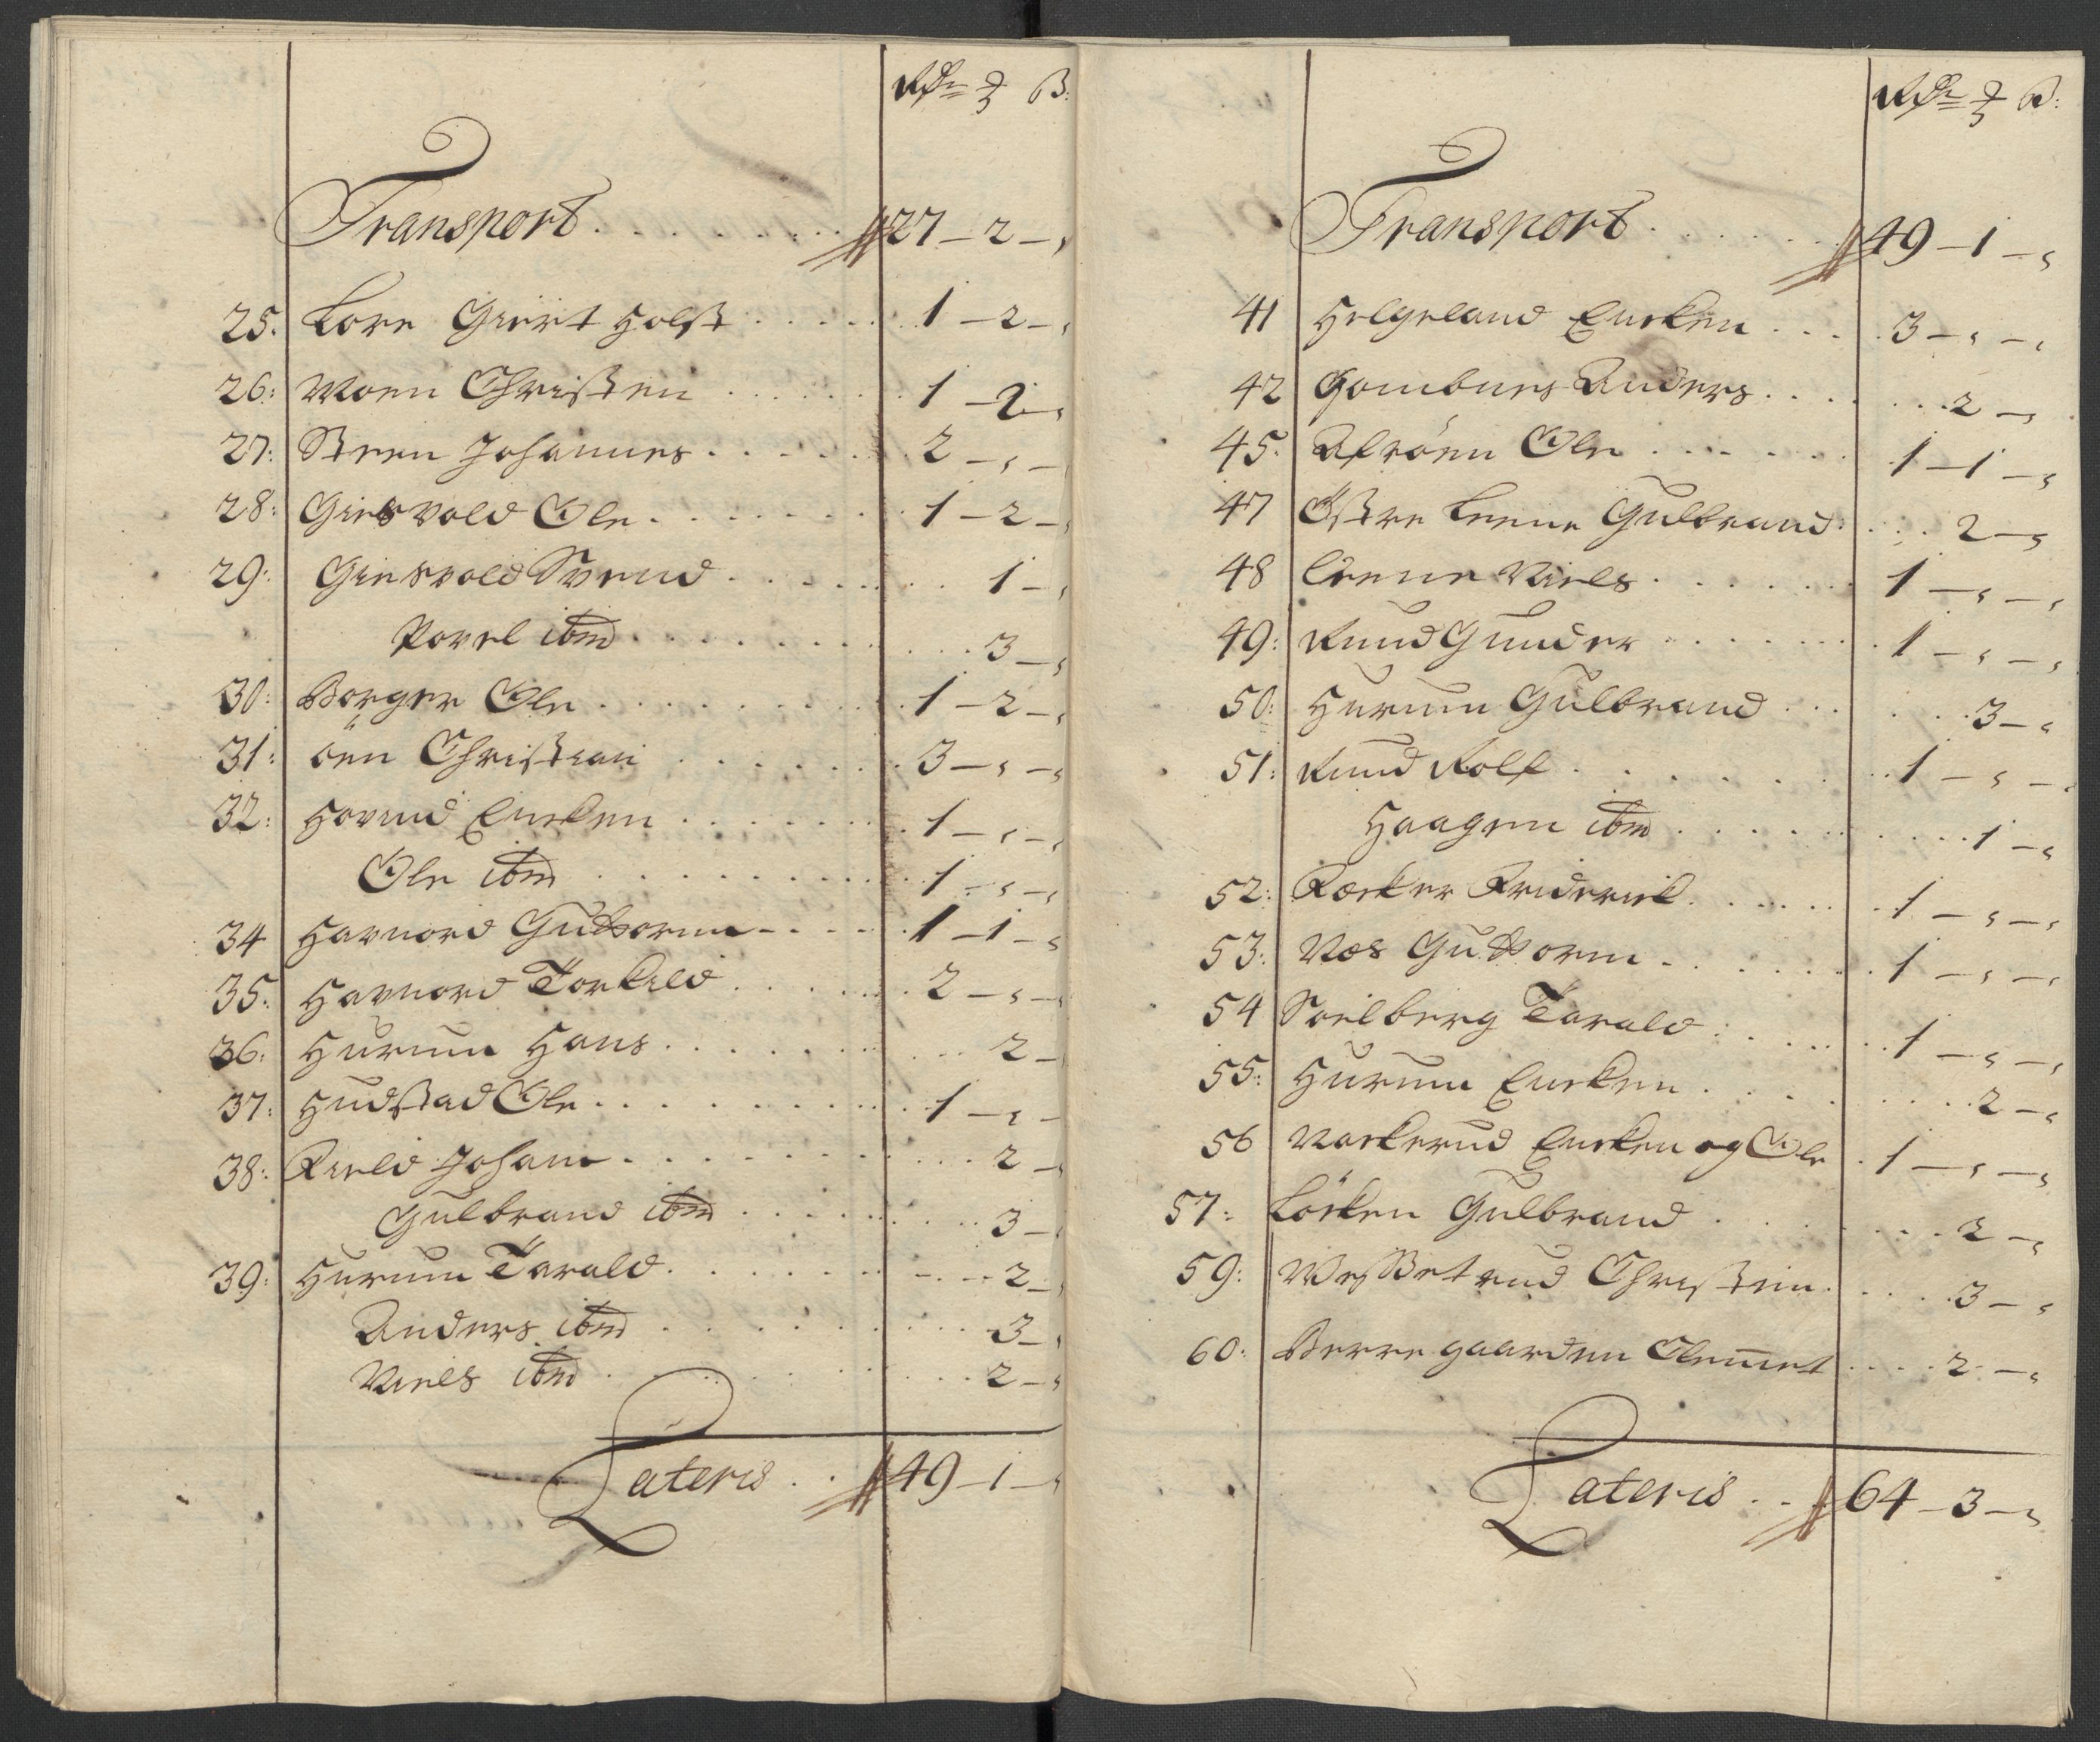 Rdr ꝫ ß:
Transport . . . . . 27 – 2 – ,
25. Lore Giert Holst . . . . . 1 – 2 – ,
26: Moen Christen . . . . . 1 – 2 – ,
27: Steen Johannes . . . . . 2 – , –
28: Giesvold Ole . . . . . 1 – 2 – ,
29: Giesvold Svend . . . . . 1 – ,
Povel ibm . . . . . 3 – ,
30: Borger Ole . . . . . 1 – 2 – ,
31: öen Christian . . . . . 3 – , – ,
32: Hovind Encken . . . . . 1 – , – ,
Ole ibm . . . . . 1 – , – ,
34 Havnord Guttorm . . . . . 1 – 1 – ,
35: Havnord Torkild . . . . . 2 – , – ,
36: Hurum Hans . . . . . 2 –
37: Hudstad Ole . . . . . 1 – , –
38: Kield Johan . . . . . 2 – ,
Gulbrand ibm . . . . . 3 – ,
39: Hurum Tarald . . . . . 2 – ,
Anders ibm . . . . . 3 – ,
Niels ibm . . . . . 2 – ,
Lateris . . 49 – 1 – ,
Rdr ꝫ ß:
Transport . . . . . 49 – 1 – ,
41 Helgeland Encken . . . 3 – , – ,
42 Gombnes Anders . . . . . 2 – ,
45. Alröen Ole . . . . . 1 – 1 – ,
47 Östre Leene Gulbrand . . . 2 – ,
48 Leene Niels . . . . . 1 – , – ,
49: Rund Gunder . . . . . 1 – , – ,
50: Hurum Gulbrand . . . . . 3 – ,
51: Rund Rolf . . . . . 1 – , – ,
Haagen ibm . . . . . 1 – ,
52: Røcker Friderick . . . . . 1 – , – ,
53: Næs Guttorm . . . . . 1 – , – ,
54 Soelberg Tarald . . . . . 1 – , – ,
55: Hurum Encken . . . . . 2 – ,
56 Nackerud Encken og Ole . 1 – , – ,
57: Löcken Gulbrand . . . . . 2 – ,
59: Wesset rud Christen . . . . 3 – ,
60: Berregaarden Clemet . . . . 2 – ,
Lateris . . 64 – 3 – ,